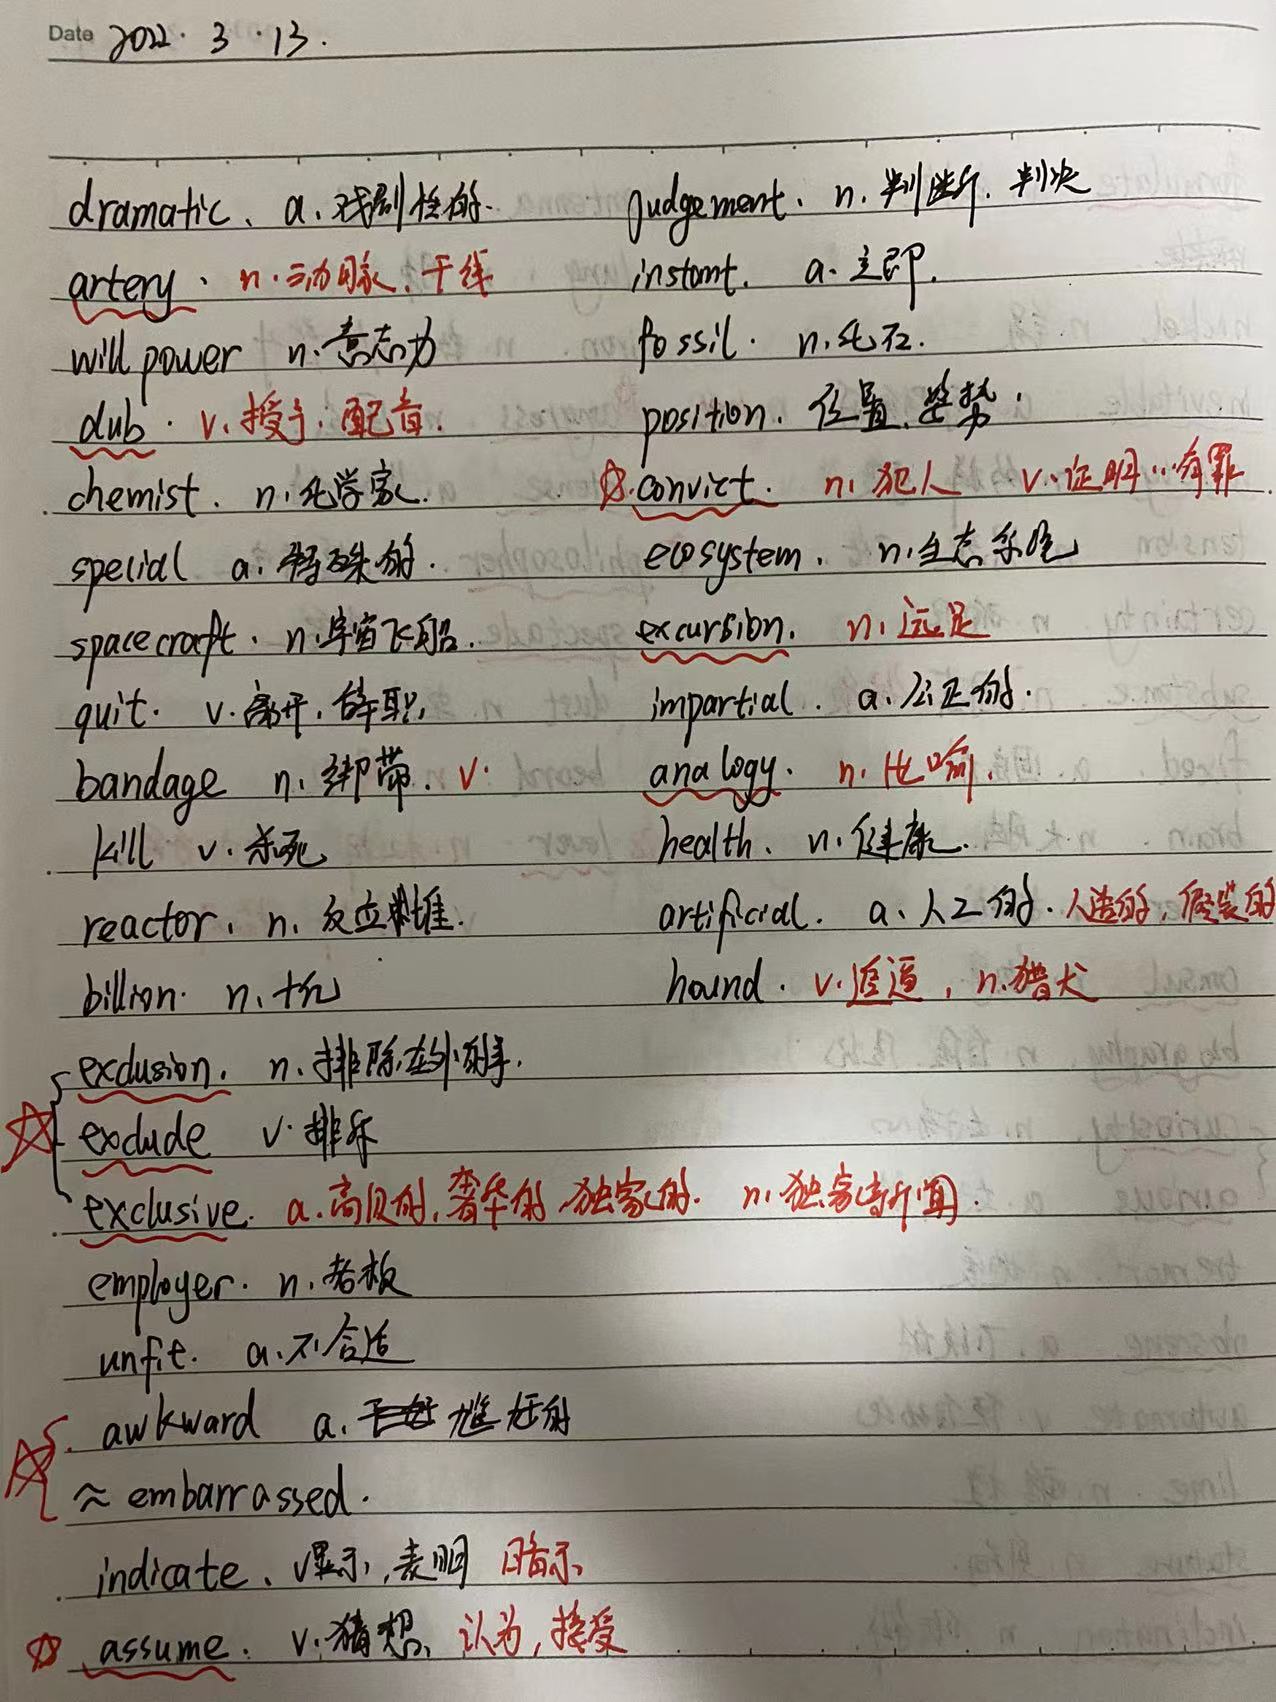 Date 2022. 3. 13.
dramatic、 a.戏剧性的.
artery. n.动脉、干线
will power n.意志力
dub. v.授予.配音.
chemist. n.化学家.
special a.特殊的.
spacecraft. n.宇宙飞船.
quit. v.离开,辞职,
bandage n.绑带. v.
kill v.杀死
reactor. n.反应堆.
billion. n.十亿
exclusion. n.排除在外的事.
exclude v.排斥
exclusive. a.高级的,奢华的 独家的. n.独家新闻.
employer. n.老板
unfit. a.不合适
awkward a. 尴尬的
≈ embarrassed.
indicate、 v显示,表明 暗示
assume. v.猜想、认为,接受
judgement. n.判断.判决
instant. a.立即.
fossil. n.化石.
position. 位置.姿势.
convict. n.犯人 v.证明…有罪
ecosystem. n.生态系统
excursion. n.远足
impartial. a.公正的.
analogy. n.比喻.
health. n.健康.
artificial. a.人工的.人造的,假装的
hound. v.追逼, n.猎犬